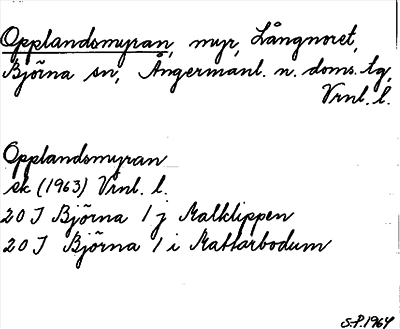 Opplandsmyran, myr, Långnoret,
Björna sn, Ångermanl. n. doms. tg,
Vrnl. l.
Opplandsmyran
ek (1963) Vrnl. l.
20 I Björna 1 j Malklippen
20 I Björna 1 i Mattarbodum
S.P. 1964